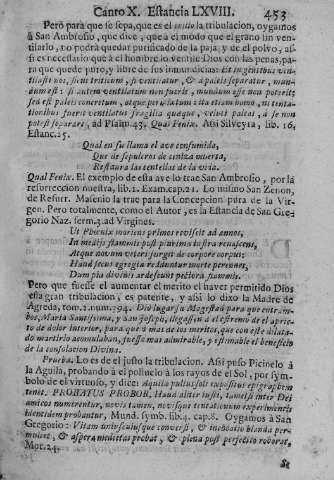 Canto X. Estancia LXVIII. 453
Pero para que se sepa, que es el indio la tribulacion, oygamos
à San Ambrosio, que dice, que à el modo que el grano sin ven-
tilarlo, no podrà quedar purificado de la paja, y de el polvo, as-
si es necesario que à el hombre lo ventile Dios con las penas, pa-
ra que quede puro, y libre de sus inmundicias: Et ingentibus ven-
tilasti nos, sicut triticum, si ventilatur, & à paleis separatur, mun-
dum est: si autem ventilatum non fuerit, mundum esse non poterit,
sed est paleis concretum, atque
fuerit ventilatus fragilia quæque, velut paleas, à se non
potest separare, ad Psalm. 43. Qual Fenix. Assi Silveyra, lib. 16,
Estanc. 25.
Qual en su llama el ave consumida,
Que de sepulcro de ceniza muerta,
Restaura las centellas de la vida.
Qual Fenix. El exemplo de esta ave lo trae San Ambrosio, por la
resurreccion nuestra, lib. 1. Exam. cap. 21. Lo mismo San Zenon,
de Resurr. Masenio la trae para la Concepcion pura de la Vir-
gen. Pero totalmente, como el Autor, es la Estancia de San Gre-
gorio Naz. serm. 2. ad Virgines.
Ut Phœnix moriens primos revisit ad annos,
In mediis flammis post plurima lustra renascens,
Atque novum veteri surgit de corpore corpus:
Haud secus egregia redduntur morte perennes,
Dum pia divinis ardescunt pectora flammis.
Pero que fuesse el aumentar el merito el haver permitido Dios
esta gran tribulacion, es patente, y assi lo dixo la Madre de
Agreda, tom. 1. num. 394. Diò lugar su Magestad para que entram-
bos, Maria Santissima, y San Joseph, llegassen à el estremo de el aprie-
to de dolor interior, para que à mas de los meritos, que con este dilata-
do martirio acumulaban, fuesse mas admirable, y estimable el beneficio
de la consolacion Divina.
Prueba. Lo es de el justo la tribulacion. Assi puso Picinelo à
la Aguila, probando à el polluelo à los rayos de el Sol, por sym-
bolo de el virtuoso, y dice: Aquila pullus soli expositus epigraphem
tenet. PROBATUS PROBOR. Haud aliter justi, tametsi inter Dei
amicos numerentur, novis tamen, novisque tentationum experimentis
identidem probantur, Mund. symb. lib. 4. cap. 8. Oygamos à San
Gregorio: Vitam uniuscujusque conversi, & inchoatio blanda per-
mulcet, & aspera medietas probat, & plena post perfectio roborat,
Mor. 24.
Si